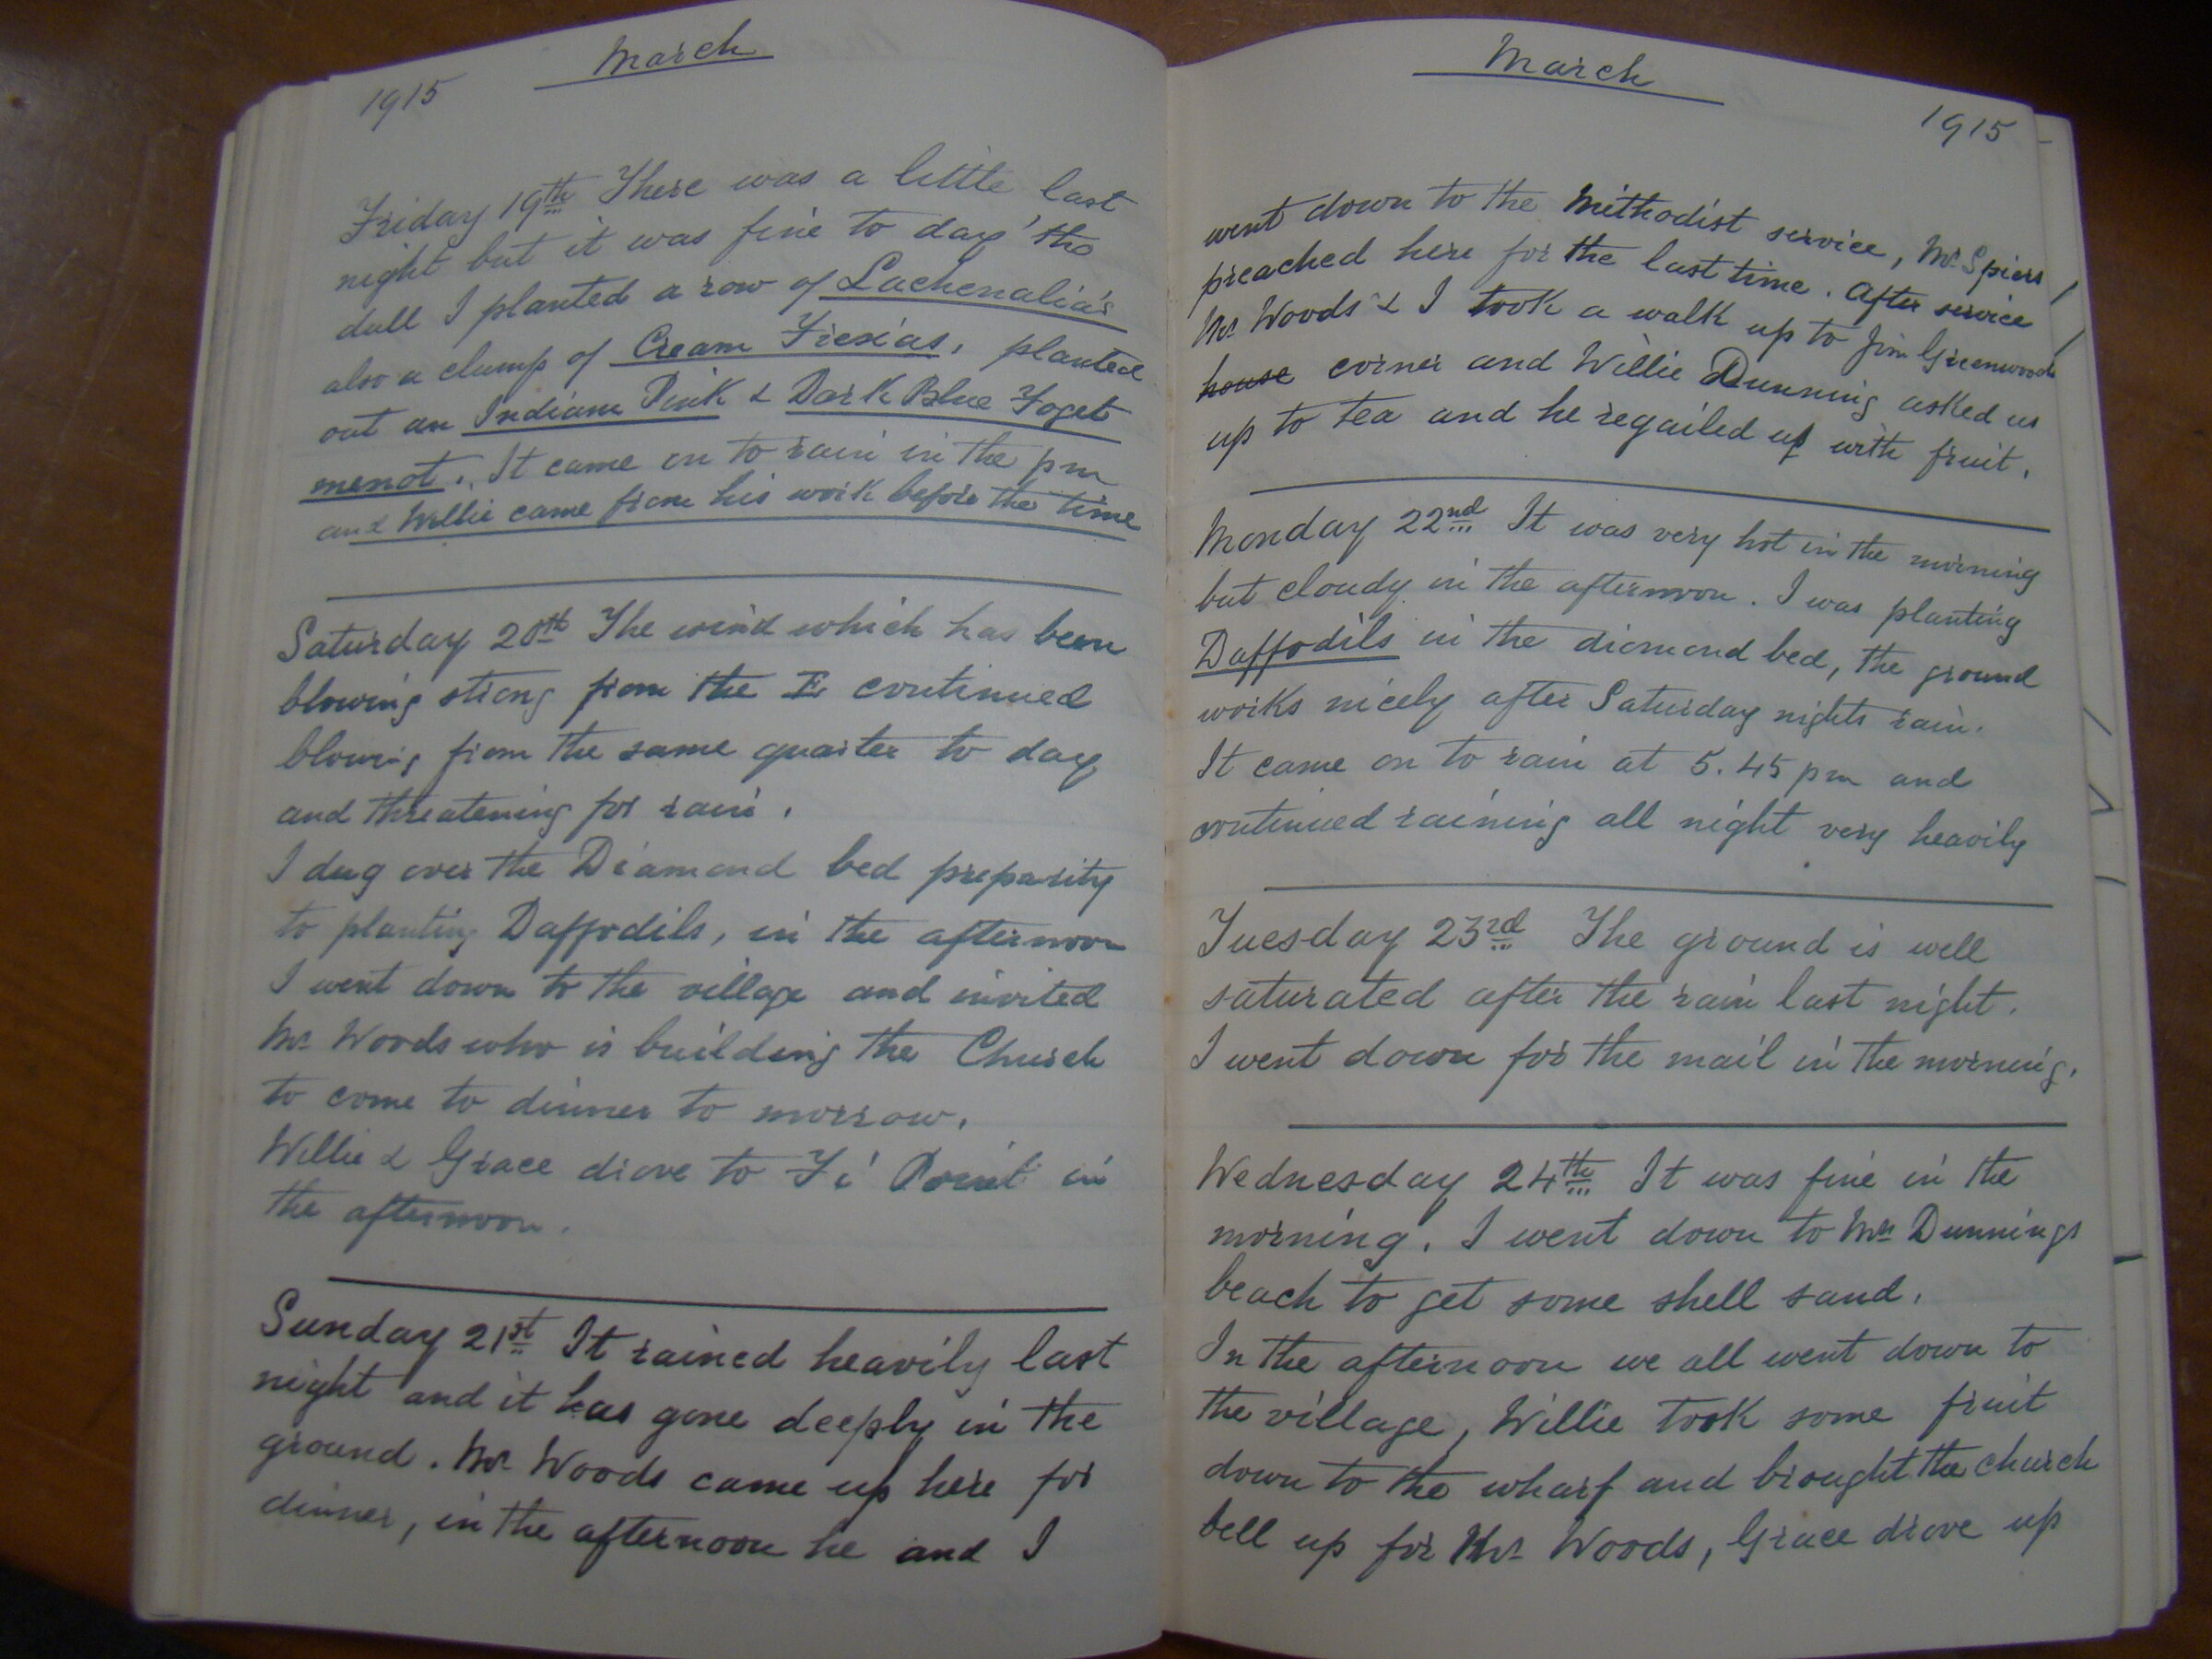 March
1915
Friday 19th There was a little last
night but it was fine to day 'tho
dull I planted a row of Lachenalia's
also a clump of Cream Fresias, planted
out an Indian Pink & Dark Blue Foget
menot. It came on to rain in the pm
and Willie came from his work before the time
Saturday 20th The wind which has been
blowing strong from the E continued
blowing from the same quarter to day
and threatening for rain.
I dug over the Diamond bed preparity
to planting Daffodils, in the afternoon
I went down to the village and invited
Mr Woods who is building the Church
to come to dinner to morrow.
Willie & Grace drove to Ti Point in
the afternoon.
Sunday 21st It rained heavily last
night and it has gone deeply in the
ground. Mr Woods came up here for
dinner, in the afternoon he and I
March
1915
went down to the Methodist service, Mr Spiers
preached here for the last time. After service
Mr Woods & I took a walk up to Jim Greenwoods
house corner and Willie Dunning asked us
up to tea and he regailed up with fruit.
Monday 22nd It was very hot in the morning
but cloudy in the afternoon. I was planting
Daffodils in the diamond bed, the ground
works nicely after Saturday nights rain.
It came on to rain at 5.45 pm and
continued raining all night very heavily
Tuesday 23rd The ground is well
saturated after the rain last night.
I went down for the mail in the morning.
Wednesday 24th It was fine in the
morning. I went down to Mrs Dunnings
beach to get some shell sand.
In the afternoon we all went down to
the village, Willie took some fruit
down to the wharf and brought the church
bell up for Mr Woods, Grace drove up